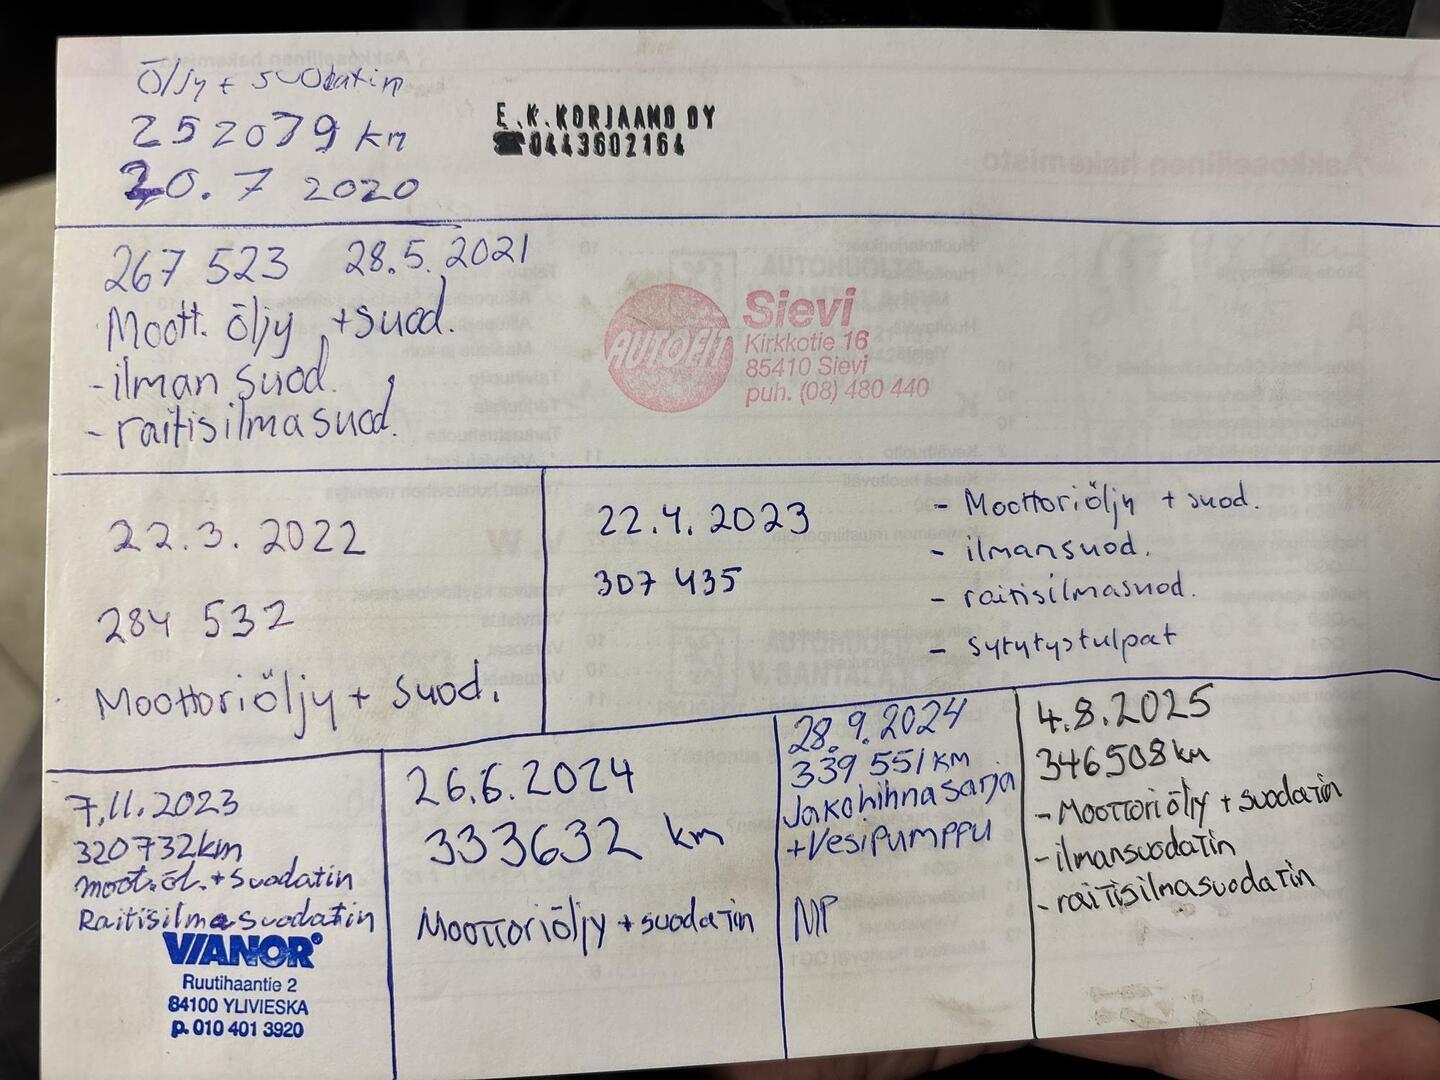 Öljy + suodatin
252079 km
20.7 2020
E.K.KORJAAMO OY
☎0443602164
267 523 28.5.2021
Moott. öljy + suod.
- ilman suod.
- raitisilmasuod.
AUTOFIT
Sievi
Kirkkotie 16
85410 Sievi
puh. (08) 480 440
22.3.2022
284 532
Moottoriöljy + suod.
22.4.2023
307 435
- Moottoriöljy + suod.
- ilmansuod.
- raitisilmasuod.
- sytytystulpat
7.11.2023
320732km
moot.öl.+suodatin
Raitisilmasuodatin
VIANOR
Ruutihaantie 2
84100 YLIVIESKA
p. 010 401 3920
26.6.2024
333632 km
Moottoriöljy + suodatin
28.9.2024
339 551 km
Jakohihnasarja
+Vesipumppu
MP
4.8.2025
346508 km
- Moottoriöljy + suodatin
- ilmansuodatin
- raitisilmasuodatin